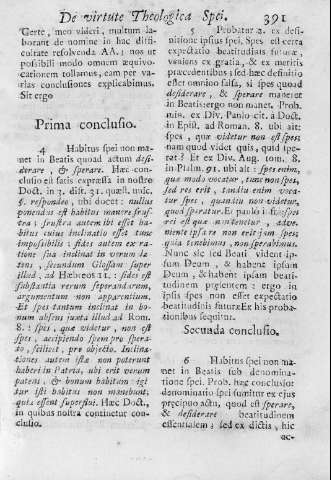 De virtute Theologica Spei. 391
Certe, meo videri, multum la-
borant de nomine in hac diffi-
cultate resolvenda AA.; nos ut
possibili modo omnem æquivo-
cationem tollamus, eam per va-
rias conclusiones explicabimus.
Sit ergo
Prima conclusio.
4 Habitus spei non ma-
net in Beatis quoad actum desi-
derare, & sperare. Hæc con-
clusio est satis expressa in nostro
Doct. in 3. dist. 31. quæst. unic.
§. respondeo, ubi docet: nullus
ponendus est habitus manere frus-
tra: frustra autem ibi esset ha-
bitus cuius inclinatio esset tunc
impossibilis: fides autem ex ra-
tione sua inclinat in verum la-
tens, secundum Glossam super
illud, ad Hæbreos 11.: fides est
substantia rerum sperandarum,
argumentum non apparentium.
Et spes tantum inclinat in bo-
num absens juxta illud ad Rom.
8.: spes, quæ videtur, non est
spes, accipiendo spem pro spera-
to, scilicet, pro objecto. Inclina-
tiones autem istæ non poterunt
haberi in Patria, ubi erit verum
patens, & bonum habitum: igi
tur isti habitus non manebunt,
quia essent superflui. Hæc Doct.,
in quibus nostra continetur con-
clusio.
5 Probatur 2. ex defi-
nitione ipsius spei. Spes est certa
expectatio beatitudinis futuræ,
veniens ex gratia, & ex meritis
præcedentibus: sed hæc definitio
esset omnino falsa, si spes quoad
desiderare, & sperare maneret
in Beatis: ergo non manet. Prob.
min. ex Div. Paulo cit. à Doct.
in Epist. ad Roman. 8. ubi ait:
spes, quæ videtur non est spes:
nam quod videt quis, quid spe-
rat? Et ex Div. Aug. tom. 8.
in Psalm. 91. ubi ait: spes enim,
quæ modo vocatur, tunc non spes,
sed res erit, tandiu enim voca-
tur spes, quandiu non videtur,
quod speratur. Et paulo
rei est quæ non tenetur, adve-
niente ipsa re non erit jam spes;
quia tenebimus, non sperabimus.
Nunc sic sed Beati vident ip-
sum Deum, & habent ipsum
Deum, & habent ipsam beati-
tudinem præsentem: ergo in
ipsis spes non esset expectatio
beatitudinis futuræ. Ex his proba-
tionibus sequitur.
Secunda conclusio.
6 Habitus spei non ma-
net in Beatis sub denomina-
tione spei. Prob. hæc conclusio:
denominatio spei sumitur ex ejus
præcipuo actu, quod est sperare,
& desiderare beatitudinem
essentialem; sed ex dictis, hic
ac-